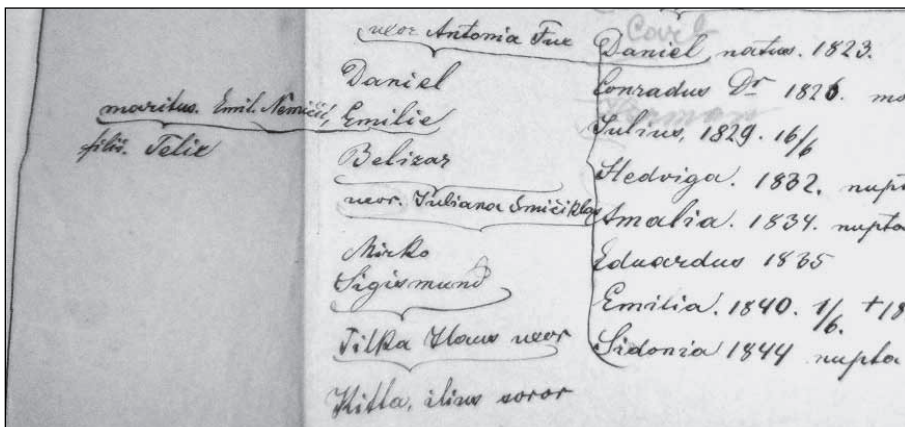 maritus. Emil. Nemičić,
filii. Felix
uxor Antonia Fux
Daniel
Emilie
Belizar
uxor. Juliana Smičiklas
Mirko
Sigismund
Tilka Haus uxor
Kitta, ilius soror
Carl
Daniel natus. 1823.
Conradus Dr 1826. mo
Herman
Julius, 1829. 16/6
Hedviga. 1832. nupt
Amalia. 1834. nupta
Eduardus 1835
Emilia. 1840. 1/6. +18
Sidonia 1844 nupta